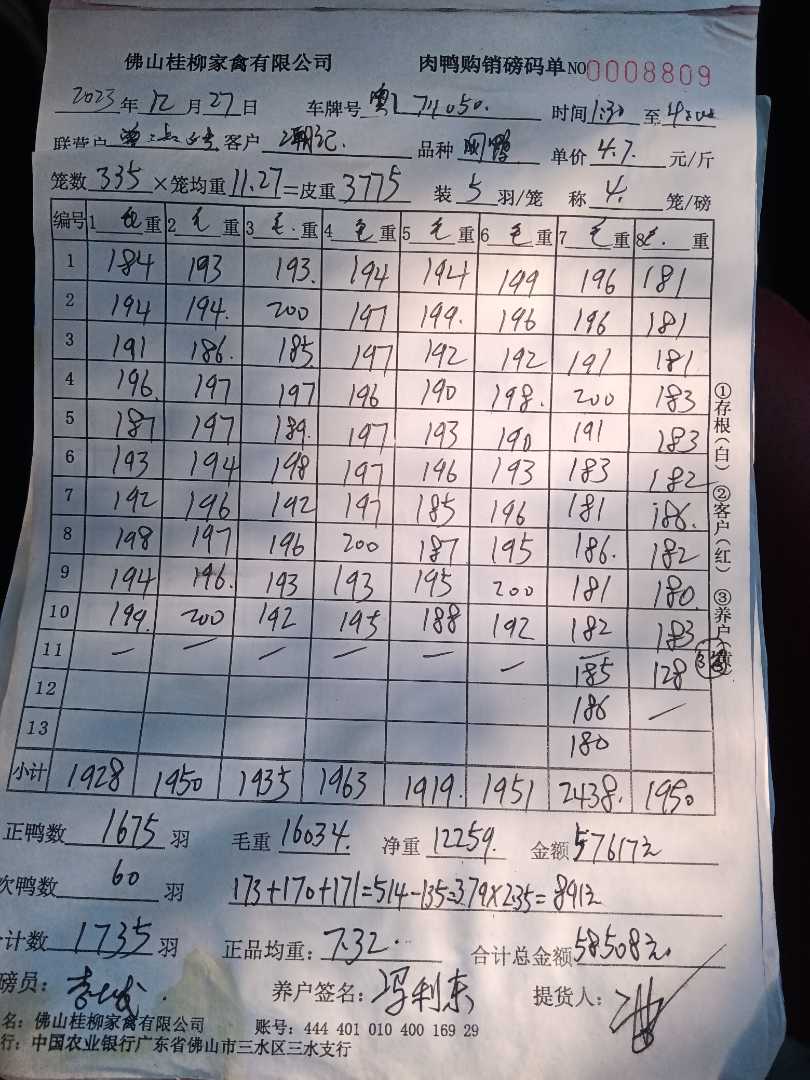 佛山桂柳家禽有限公司 肉鸭购销磅码单 NO 0008809
2023年12月27日 车牌号 时间1:30至4:00
联营户 客户 潮记 品种 单价4.7元/斤
笼数335×笼均重11.27=皮重3775 装5羽/笼 称4.笼/磅
编号 1毛重 2毛重 3毛重 4毛重 5毛重 6毛重 7毛重 8毛重
1 184 193 193 194 194 199 196 181
2 194 194 200 197 199 196 196 181
3 191 186 185 197 192 192 191 181
4 196 197 197 196 190 198 200 183
5 187 197 189 197 193 190 191 183
6 193 194 198 197 196 193 183 182
7 192 196 192 197 185 196 181 186
8 198 197 196 200 187 195 186 182
9 194 196 193 193 195 200 181 180
10 199 200 192 195 188 192 182 183
11 — — — — — — 185 128
12 186 —
13 180
小计 1928 1950 1935 1963 1919 1951 2438 1950
正鸭数1675羽 毛重16034 净重12259 金额57617元
次鸭数60羽 173+170+171=514-135=379×2.35=891元
计数1735羽 正品均重:7.32 合计总金额58508元
磅员: 养户签名:冯利东 提货人:
名:佛山桂柳家禽有限公司 账号:444 401 010 400 169 29
行:中国农业银行广东省佛山市三水区三水支行
①存根(白) ②客户(红) ③养户(黄)